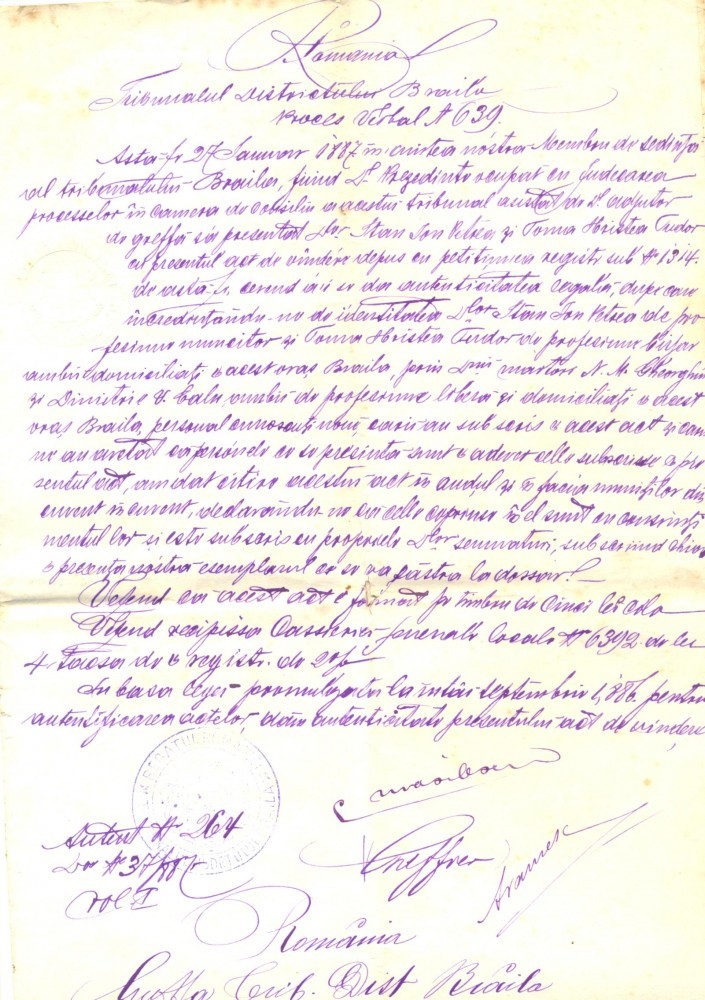 România
Tribunalul Districtului Braila
Proces Verbal N 639.
Astă-di 27 Januar 1887 în curtea nóstra Membru de sedinţă
al tribunalului Braila, fiind Dl Prezedinte ocupat cu judecarea
processelor in camera de consiliu a acestui tribunal asistat de Dl adjutor
de greffă s'a presentat Dlor Stan Ion Petrea şi Toma Hristea Tudor
cu presentul act de vindére depus cu petiţiunea registr sub N 1314.
de astă-di, cerend a i se da autenticitatea legală, dupe care
incredinţându-ne de identitatea Dlor Stan Ion Petrea de pro
fesiune muncitor şi Toma Hristea Tudor de profesiune birjar
ambii domiciliaţi in acest oraş Braila, prin Dnii martori N. M. Gheorghiu
şi Dimitrie Bala, ambii de profesiune libera şi domiciliaţi in acest
oraş Braila, personal cunoscuţi noue, cari au subscris in acest act şi cari
ne au arétat ca persónele ce se presinta sunt in adevér celle subscrise in pre
sentul act, am dat citire acestui act în auḑul şi în facia numiţilor din
cuvent in cuvent, declarându-ne ca celle coprinse în el sunt cu consimţi
mentul lor şi este subscris cu propriele Dlor semnaturi, subscriind chiar
in presenţa nóstra esemplarul ce se va păstra la dossar.
Veḑend ca acest act e format pe timbru de cinci lei
Veḑend recipissa Cassieriei generale locale N 6392. de lei
4. Tacsa de registr. de
In basa legei promulgata la întâi septembrie 1886. pentru
autentificarea actelor, dăm autenticitate presentului act de vindére
Autent N 264
Do N 37/887
vol I
România
Greffa Trib. Dist Brăila